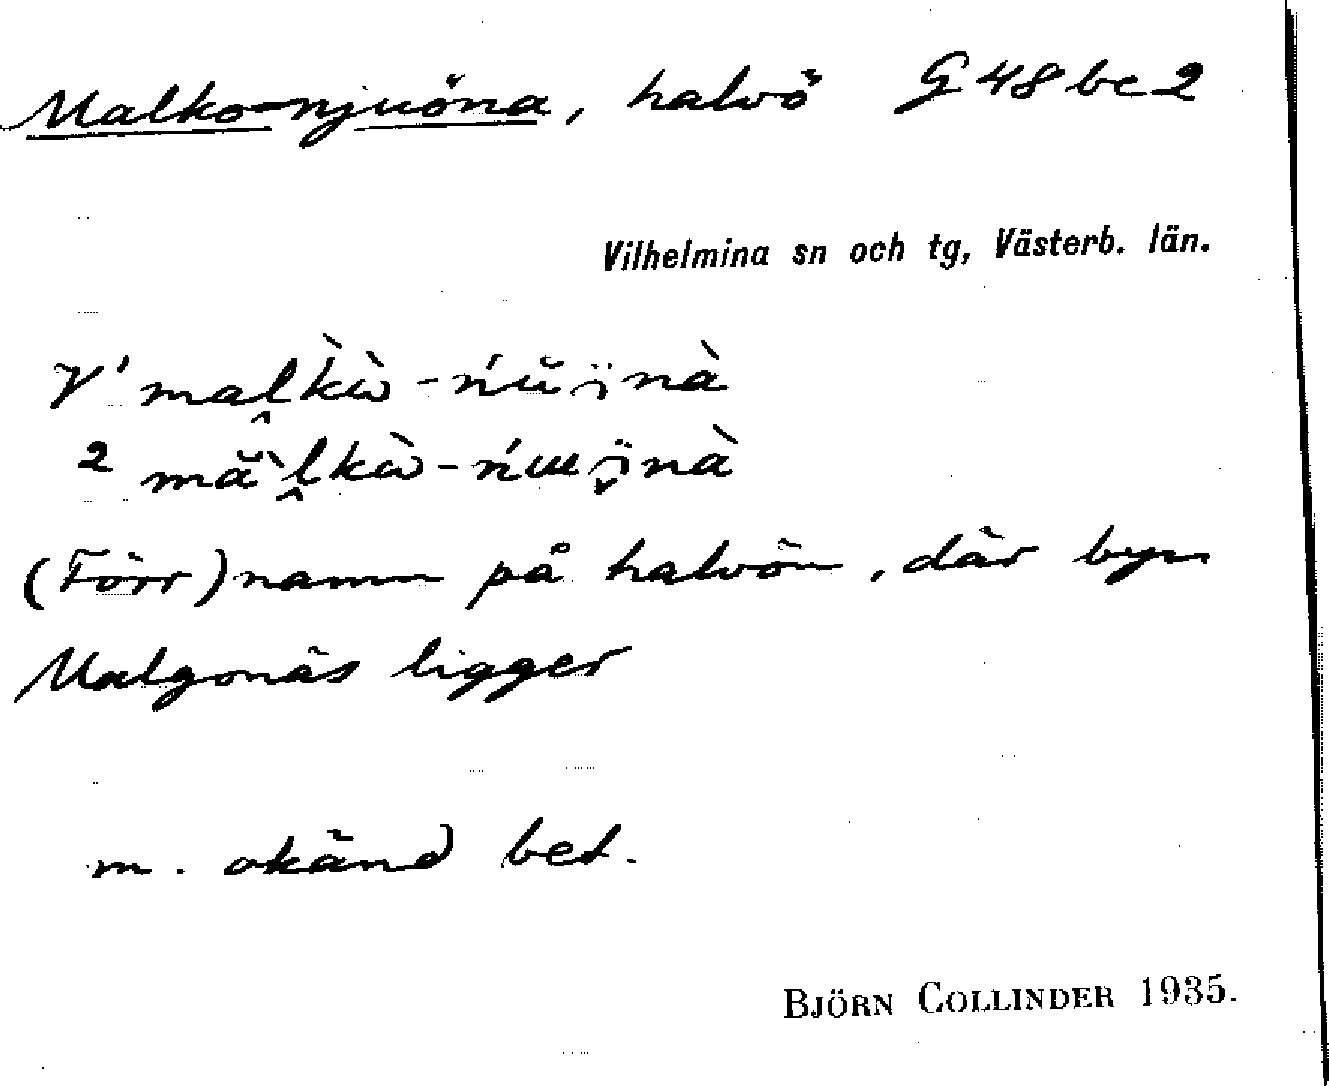 Malko-njuöna, halvö G 48 bc 2
Vilhelmina sn och tg, Västerb. län.
V¹
2
(Förr) namn på halvön, där byn
Malgonäs ligger
m. okänd bet.
BJÖRN COLLINDER 1935.